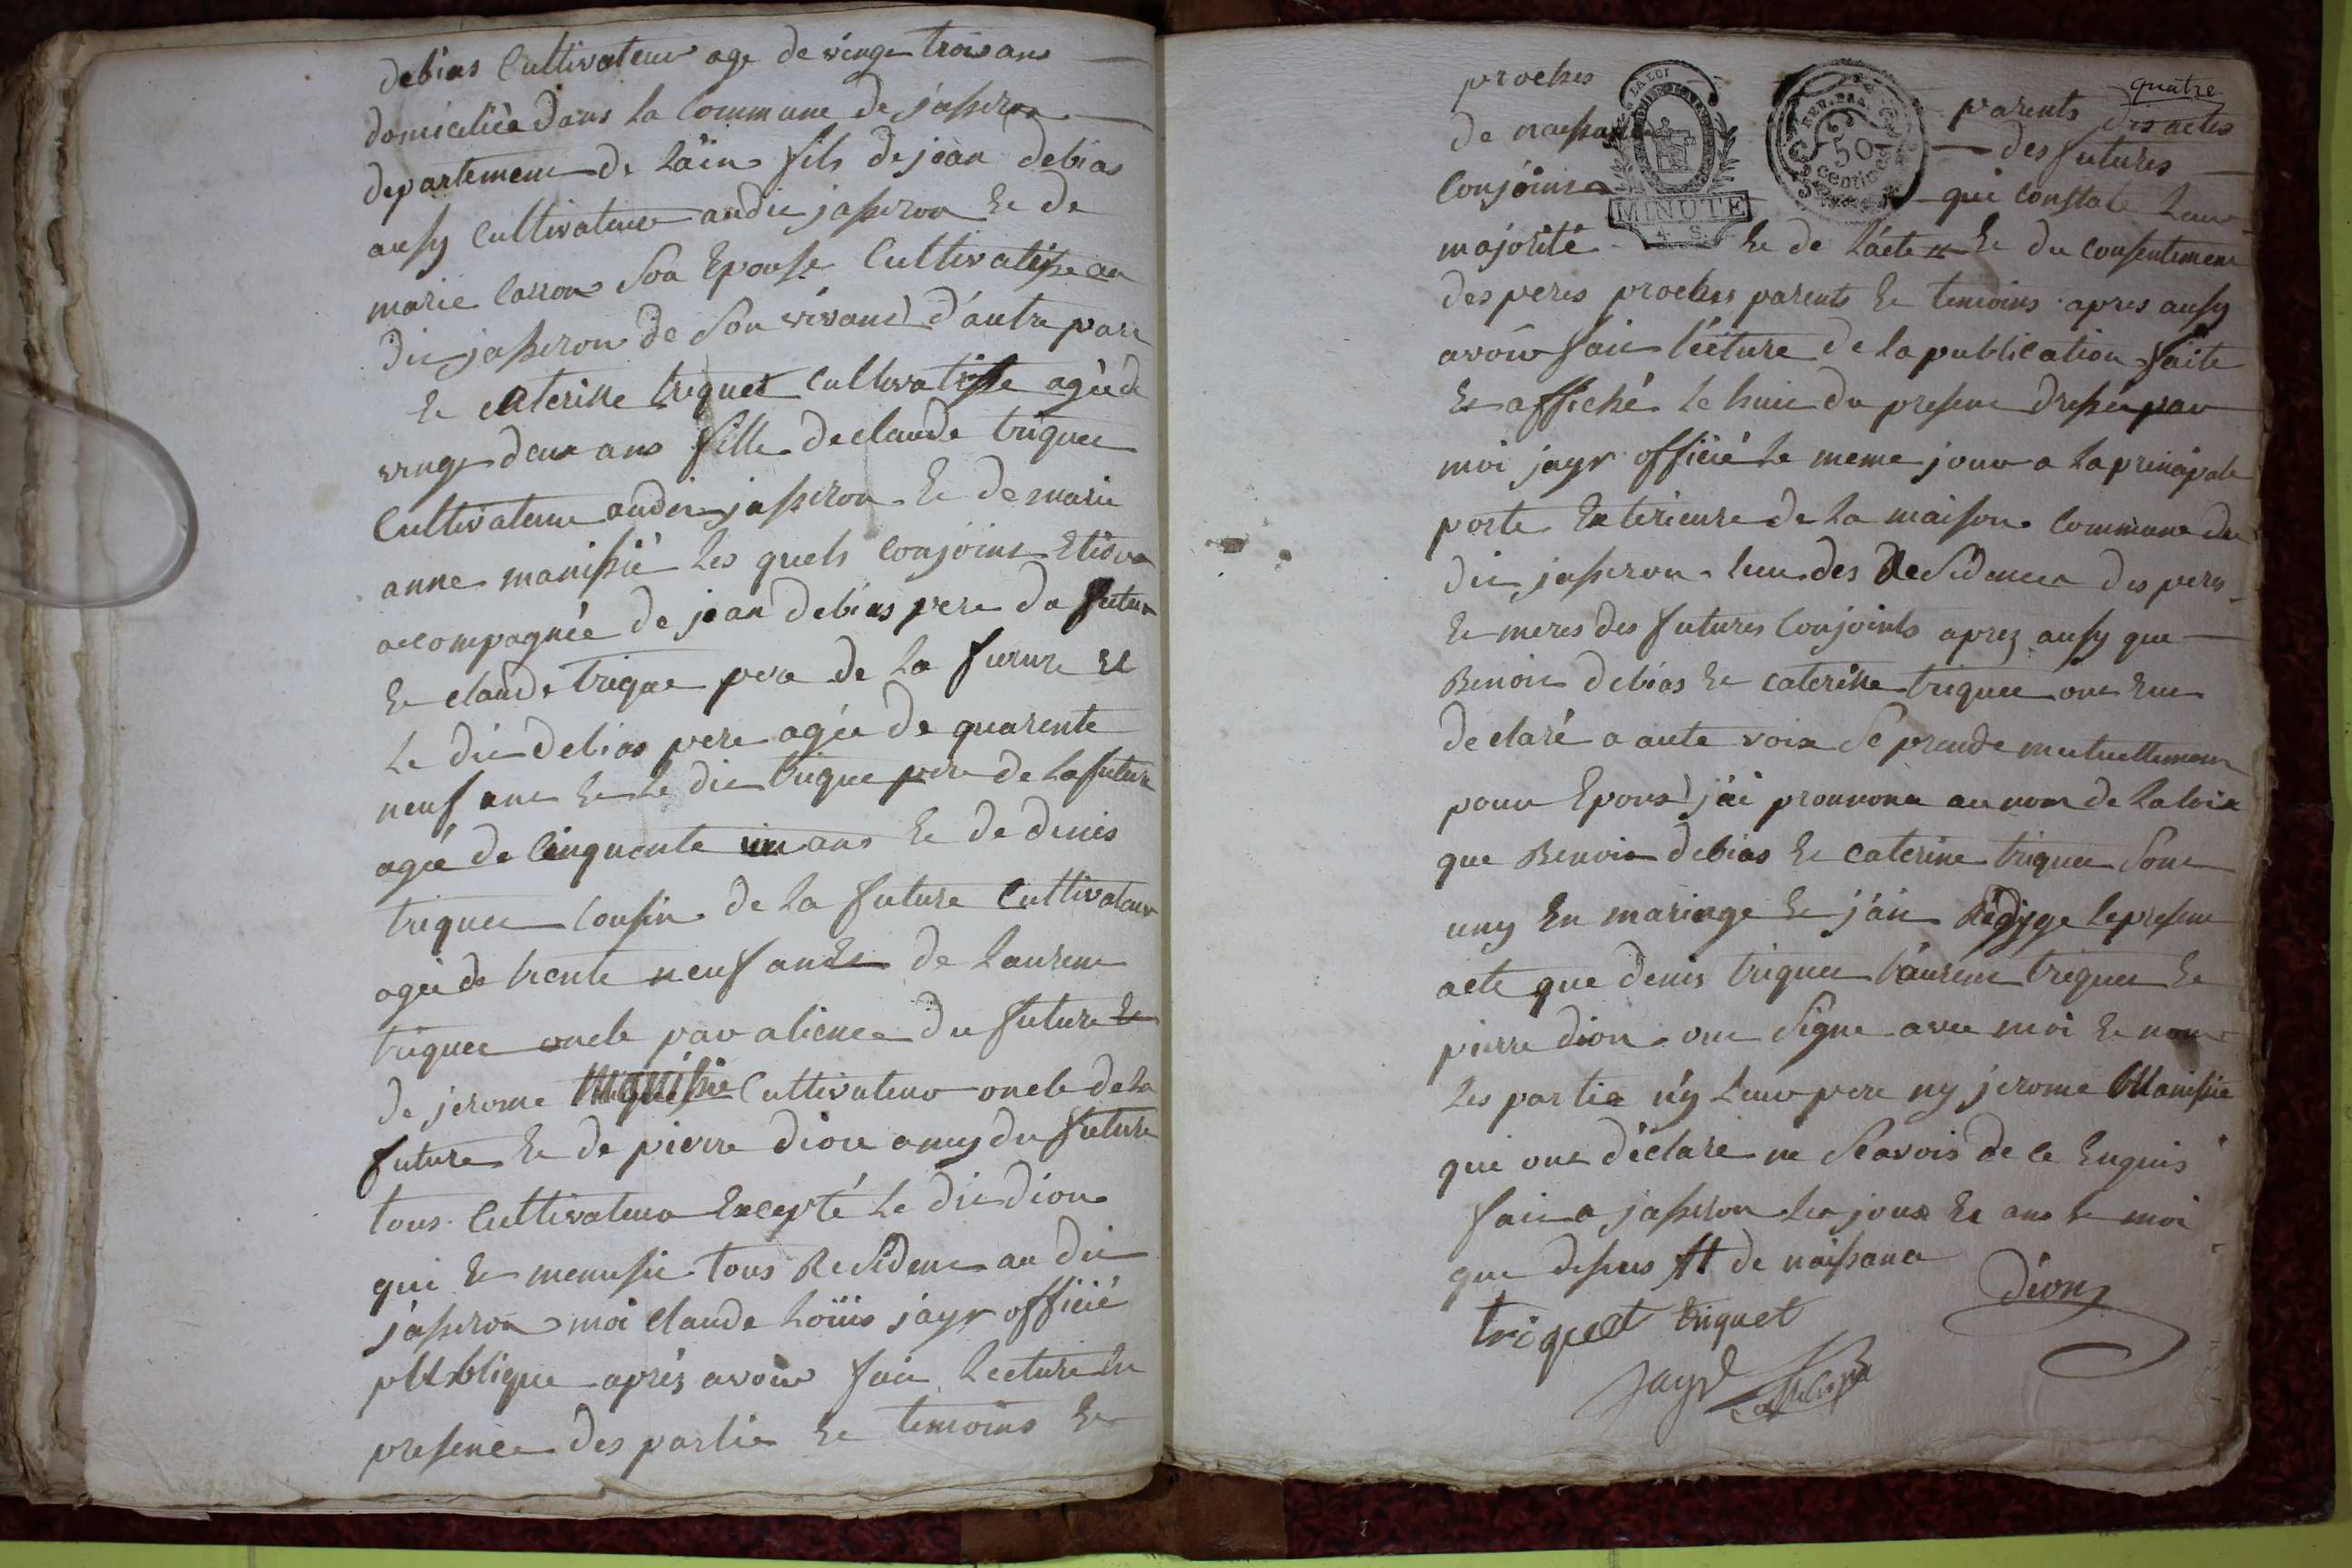 debias Cultivateur age de vingt trois ans
domiciliéé dans la Commune de jasseron
departement de l'ain fils de jean debias
aussy Cultivateur audit jasseron Et de
marie Carron Son Epouse Cultivatisse au
dit jasseron de Son vivand d'autre part
Et Caterine triquet Cultivatisse agée de
vingt deux ans fille de claude triquet
Cultivateur audit jasseron Et de marie
anne manissié les quels Conjoint Etion
accompagnée de jean debias pere du futur
Et claude trique pere de la future Et
Le dit debias pere agée de quarente
neuf ans Et le dit trique pere de la future
agée de Cinquante un ans Et de denis
triquet Cousin de la future Cultivateur
agée de trente neuf ans Et de laurent
triquet oncle par alience du future Et
de jerome manissie Cultivateur oncle de la
future Et de pierre dion amy du future
tous Cultivateur Excepté le dit dion
qui Et menusie tous Resident au dit
jasseron moi claude Loüis jayr officié
publique aprés avoir fait Lecture En
presence des partie Et temoins Et
quatre
proches parents des actes
de naissance des futures
Conjoint qui constate Leur
majorité Et de l'acte Et du consentement
des peres proches parents Et temoins apres aussy
avoir fait lécture de la publication faite
Et affiché le huit du present dressée par
moi jayr officié le meme jour a la principale
porte Exterieure de la maison Commune du
dit jasseron lieu des Residence des peres
Et meres des futures Conjoints aprez aussy que
Benoit debias Et caterine triquet ont Eut
declaré a aute voix Se prende mutuellement
pour Epous j'ai prononcé au nom de la loix
que Benoit debias Et Caterine triquet Sont
uny En mariage Et j'ai Rédige le present
acte que denis triquet laurent triquet Et
pierre dion ont Signe avec moi Et non
les partie n'y leur pere ny jerome Manissie
qui ont déclare ne Scavois de ce Enquis
fait a jasseron les jour Et ans Et moi
que dessus # de naissance
triquet triquet dion
jayr
LA LOI
MINUTE
50
centimes